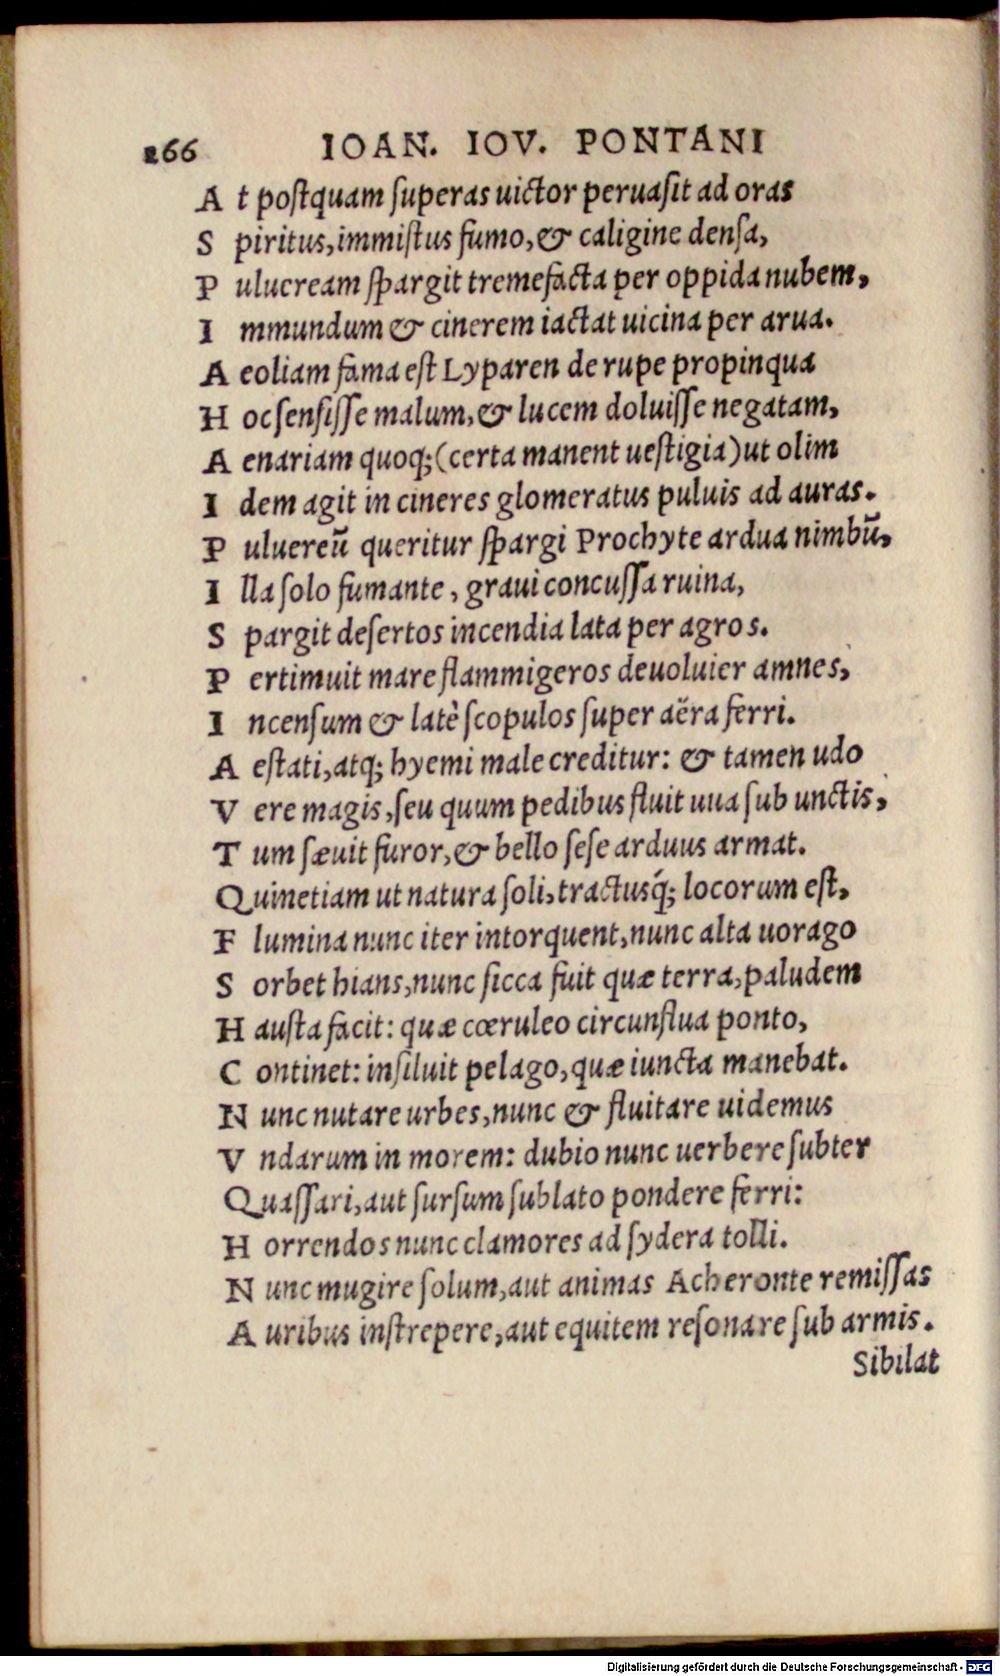 266 IOAN. IOV. PONTANI
A t postquam superas uictor peruasit ad oras
S piritus, immistus fumo, & caligine densa,
P ulueream spargit tremefacta per oppida nubem,
I mmundum & cinerem iactat uicina per arua.
A eoliam fama est Lyparen de rupe propinqua
H oc sensisse malum, & lucem doluisse negatam,
A enariam quoq; (certa manent uestigia) ut olim
I dem agit in cineres glomeratus puluis ad auras.
P uluereũ queritur spargi Prochyte ardua nimbũ,
I lla solo fumante, graui concussa ruina,
S pargit desertos incendia lata per agros.
P ertimuit mare flammigeros deuoluier amnes,
I ncensum & latè scopulos super aëra ferri.
A estati, atq; hyemi male creditur: & tamen udo
V ere magis, seu quum pedibus fluit uua sub unctis,
T um sæuit furor, & bello sese arduus armat.
Quinetiam ut natura soli, tractusq́; locorum est,
F lumina nunc iter intorquent, nunc alta uorago
S orbet hians, nunc sicca fuit quæ terra, paludem
H austa facit: quæ cœruleo circunflua ponto,
C ontinet: insiluit pelago, quæ iuncta manebat.
N unc nutare urbes, nunc & fluitare uidemus
V ndarum in morem: dubio nunc uerbere subter
Quassari, aut sursum sublato pondere ferri:
H orrendos nunc clamores ad sydera tolli.
N unc mugire solum, aut animas Acheronte remissas
A uribus instrepere, aut equitem resonare sub armis.
Sibilat
Digitalisierung gefördert durch die Deutsche Forschungsgemeinschaft - DFG